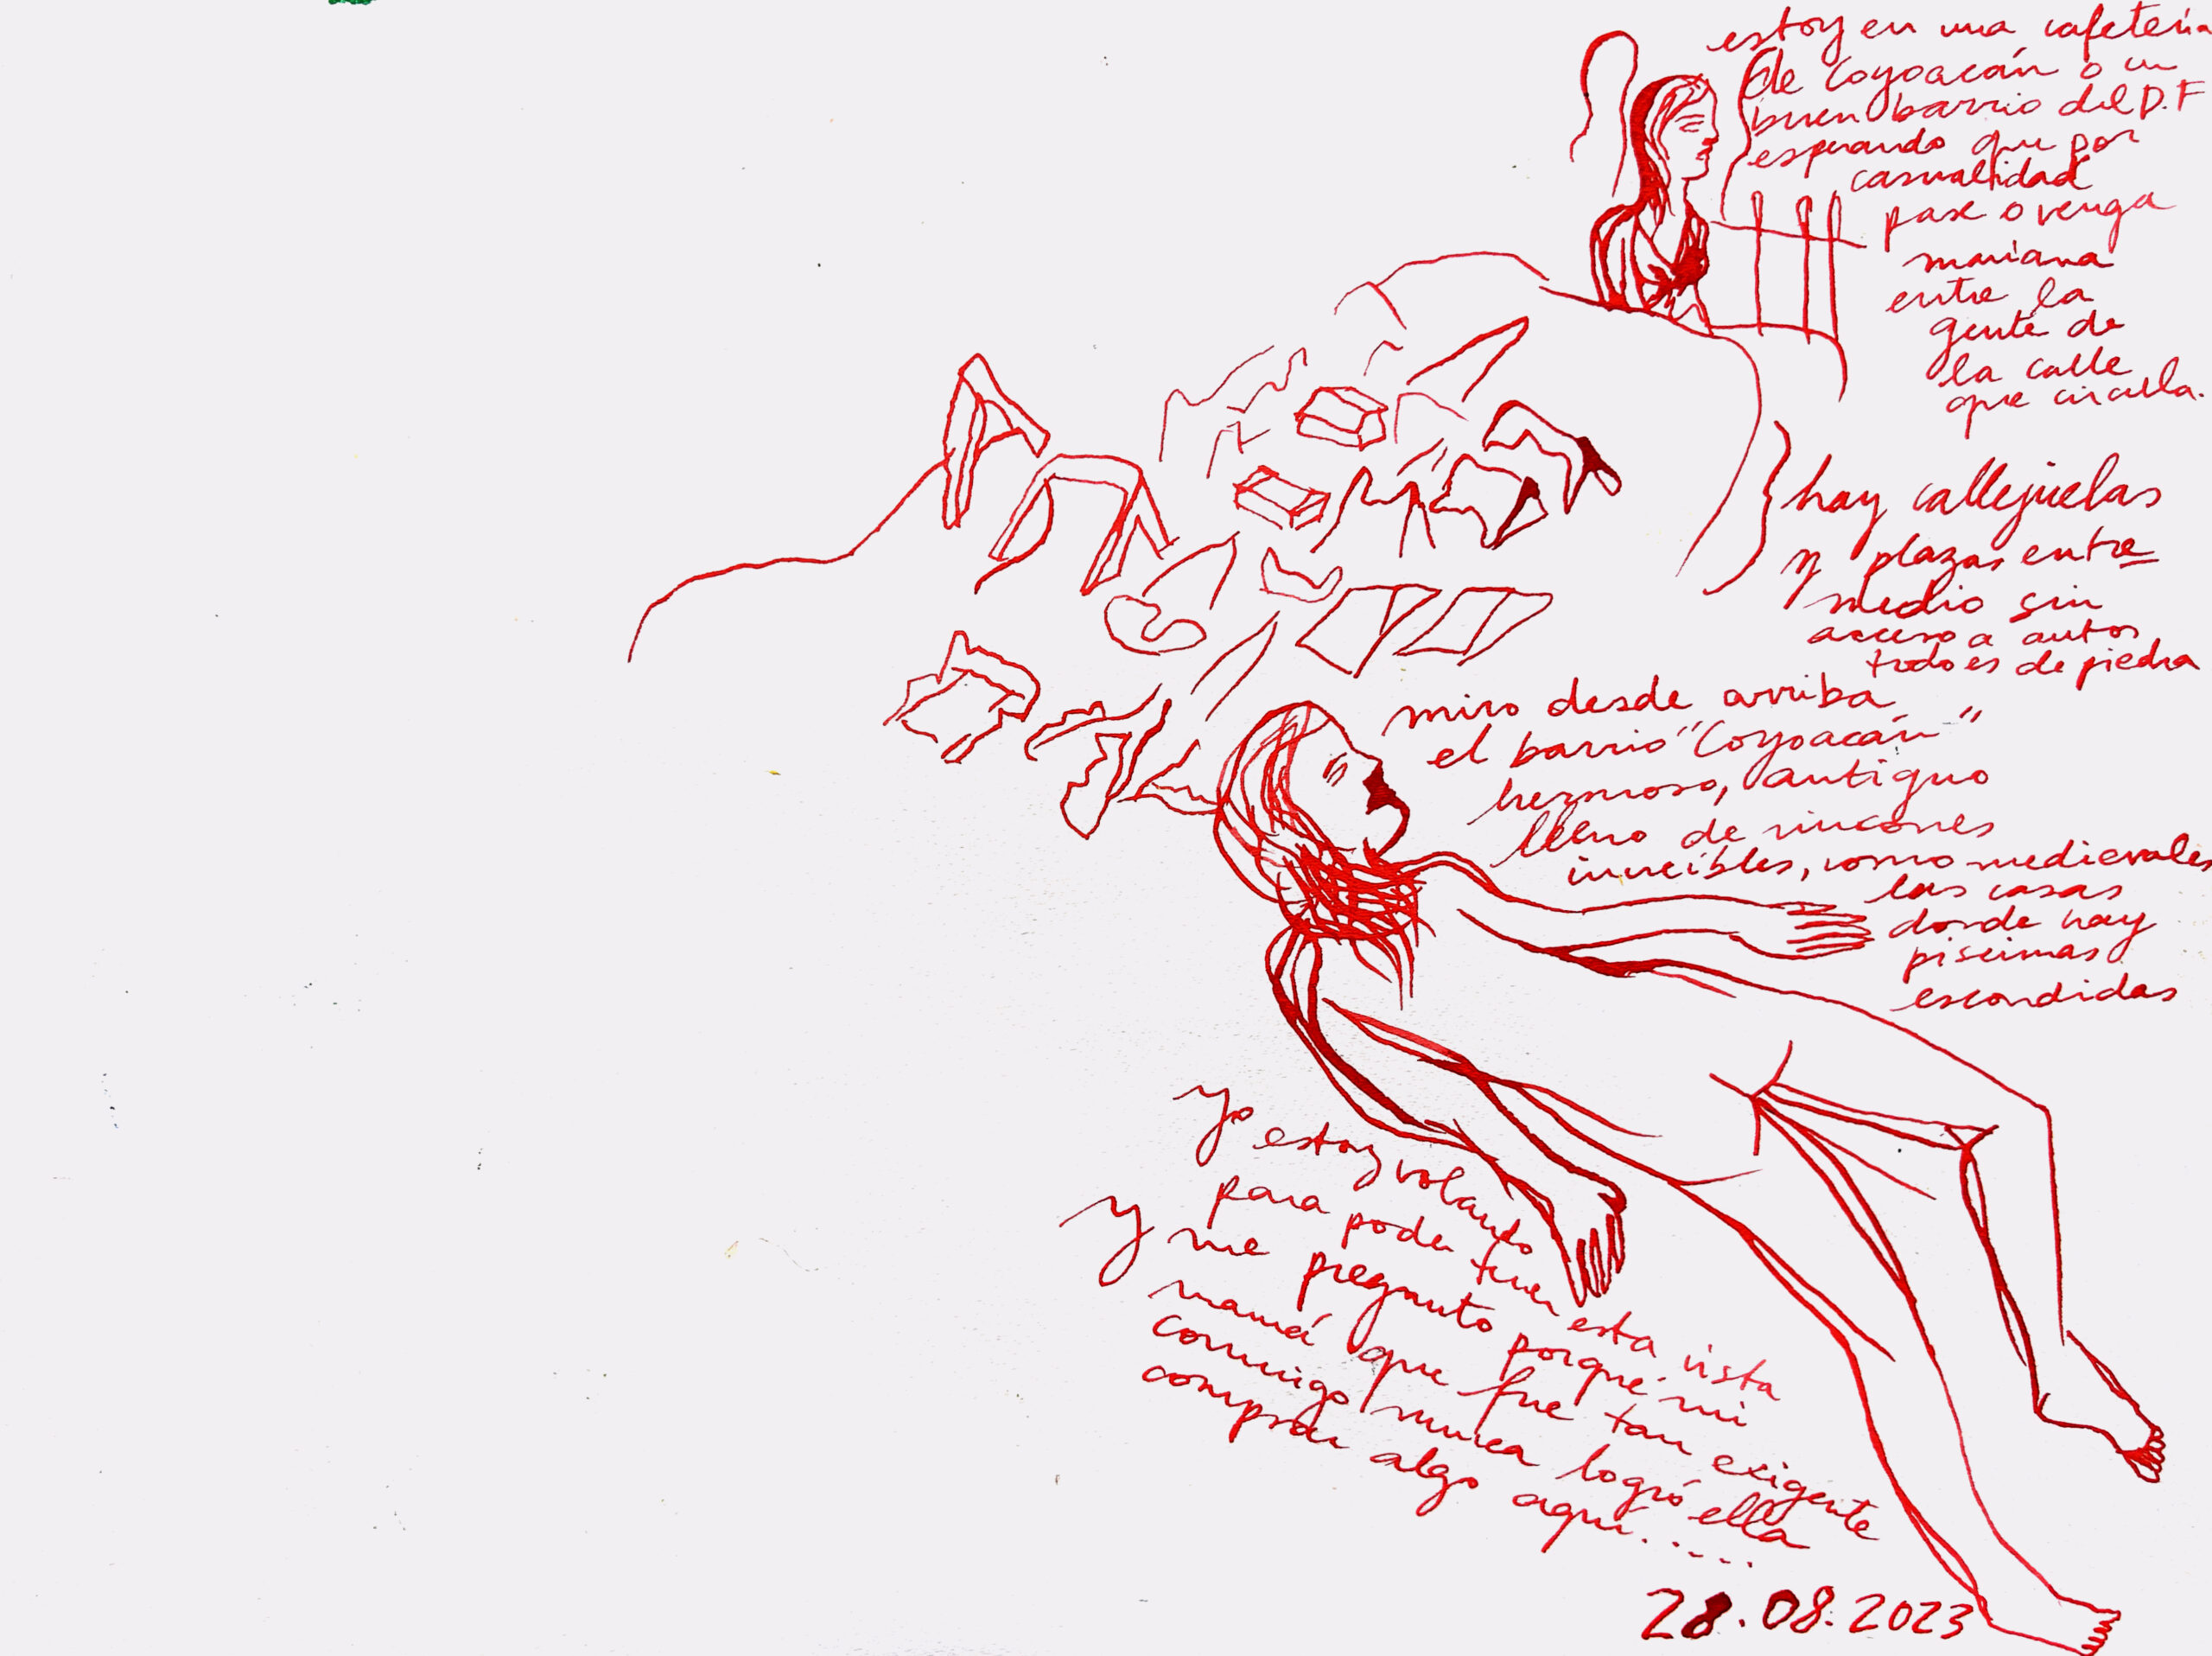 estoy en una cafetería
de Coyoacán o un
buen barrio del D.F
esperando que por
casualidad
pase o venga
mariana
entre la
gente de
la calle
que circula.
hay callejuelas
y plazas entre
medio sin
acceso a autos
todo es de piedra
miro desde arriba
el barrio "Coyoacán"
hermoso, antiguo
lleno de rincones
increíbles, como medievales
las casas
donde hay
piscinas
escondidas
Yo estoy volando
para poder tener esta vista
y me pregunto porque mi
mamá que fue tan exigente
conmigo nunca logró ella
comprar algo aquí.....
28.08.2023